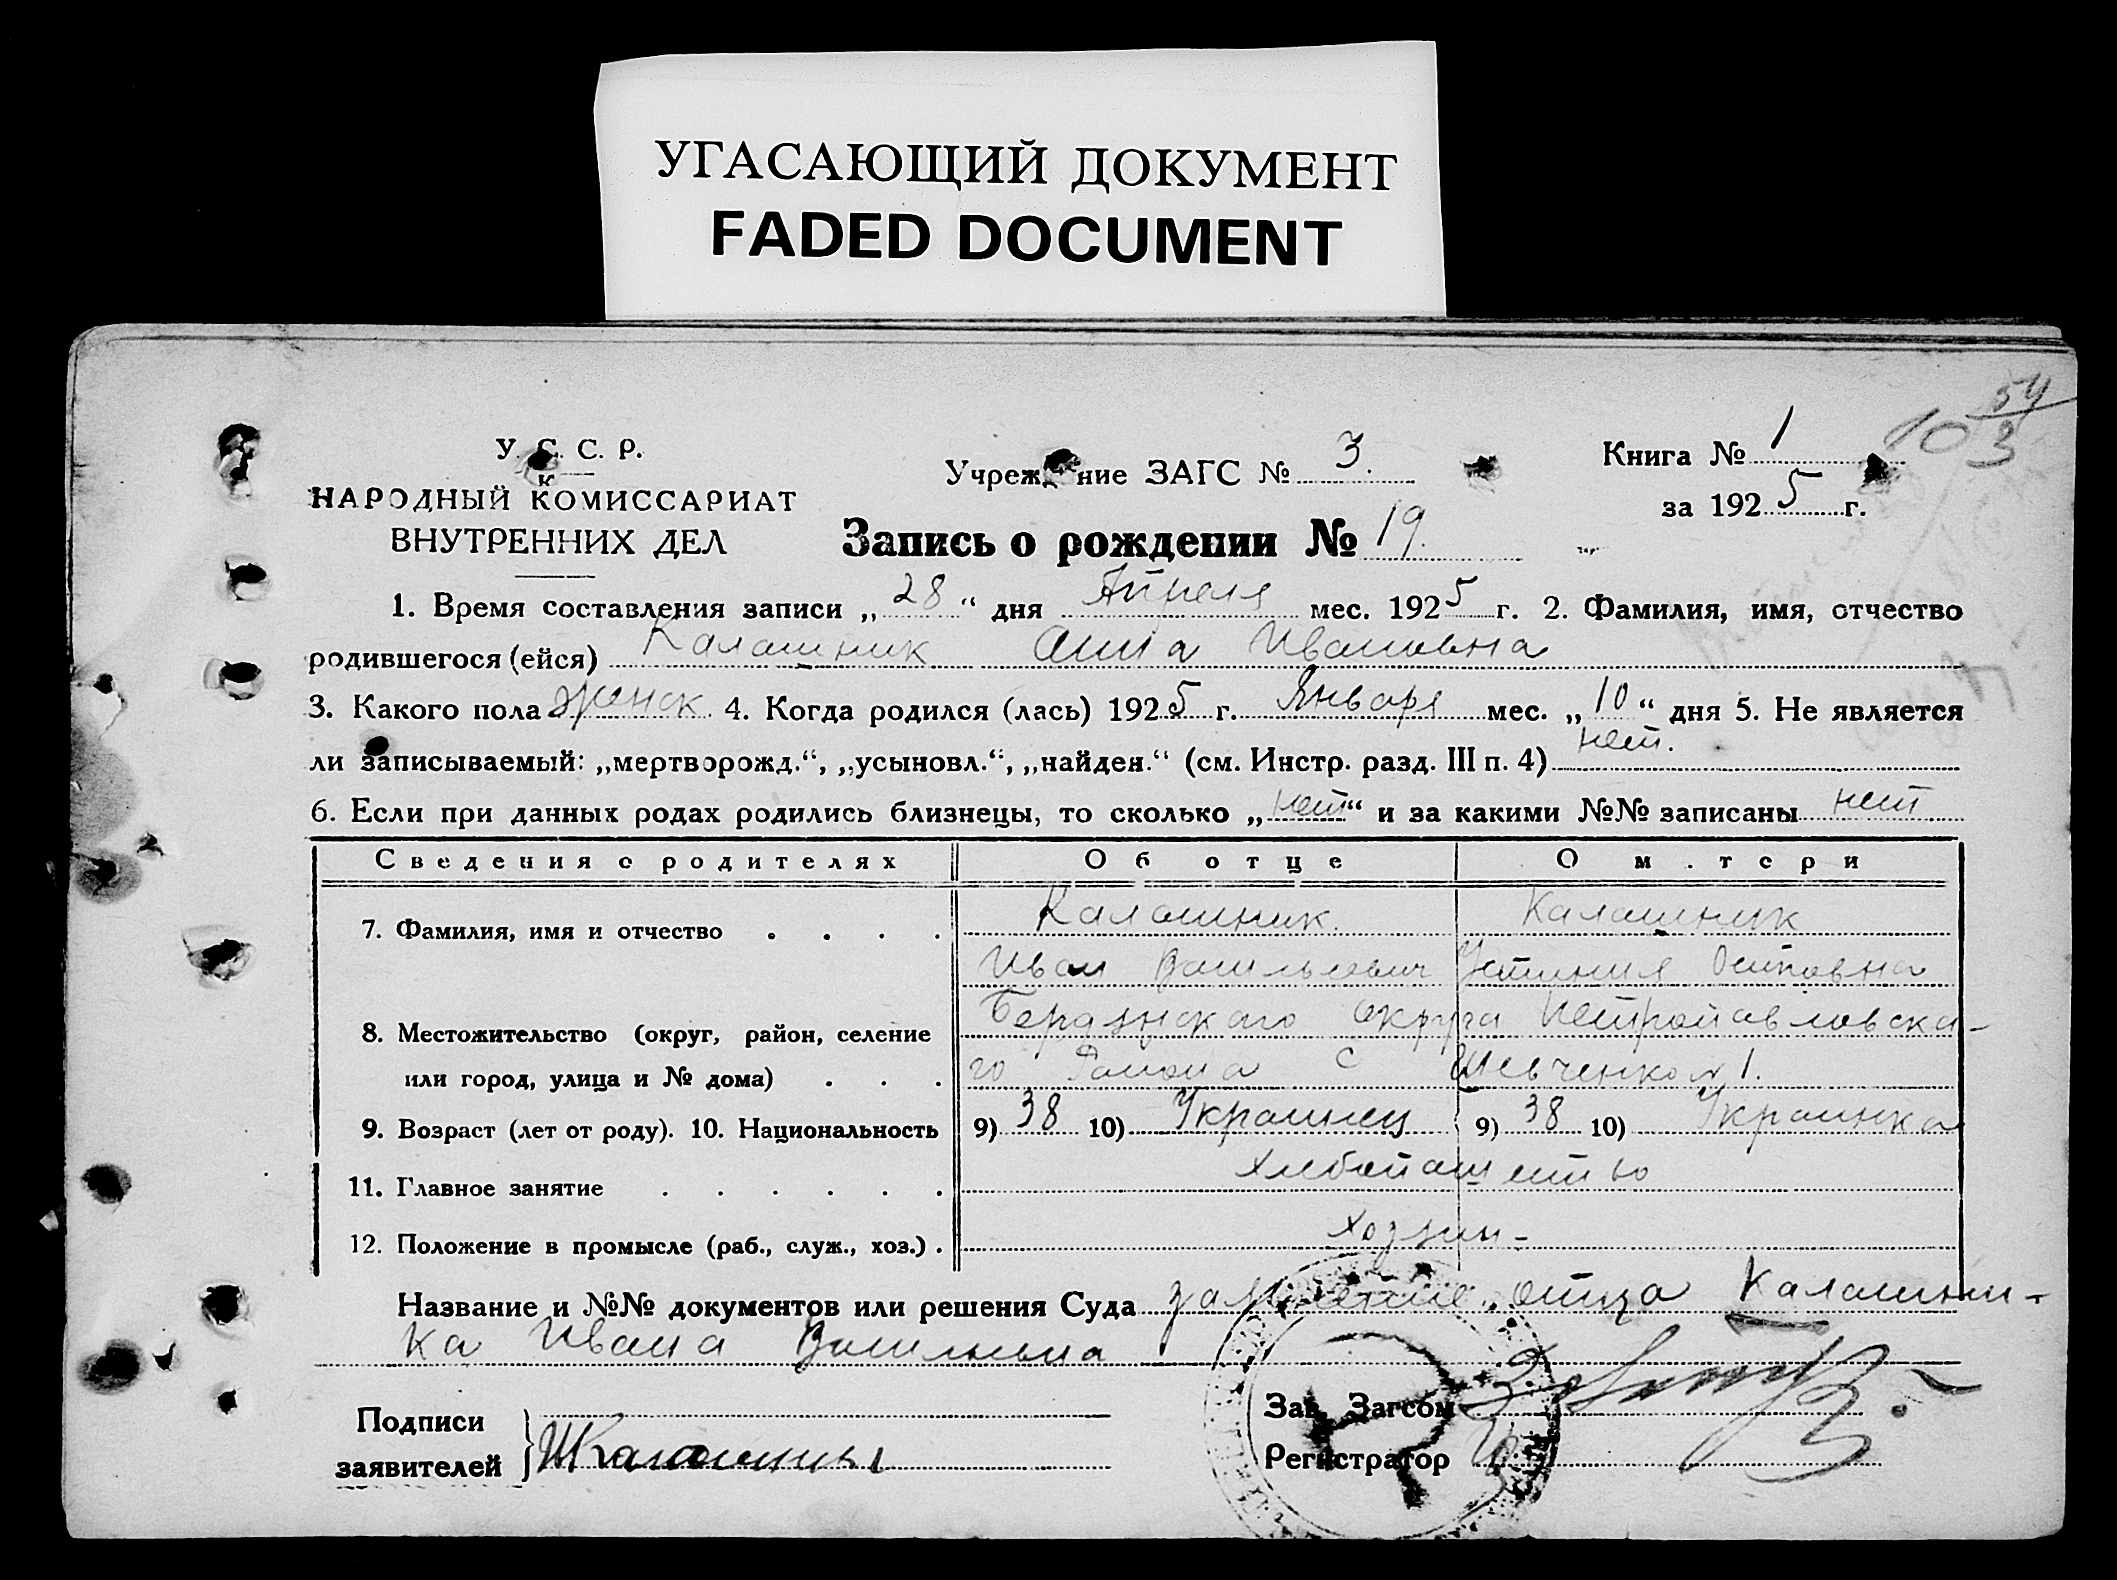 УГАСАЮЩИЙ ДОКУМЕНТ
FADED DOCUMENT
54
10 3
У. С. С. Р.
Учреждение ЗАГС № 3.
Книга № 1
НАРОДНЫЙ КОМИССАРИАТ
за 1925 г.
ВНУТРЕННИХ ДЕЛ
Запись о рождении № 19.
1. Время составления записи „28“ дня Апреля мес. 1925 г. 2. Фамилия, имя, отчество
родившегося (ейся) Калашник Анна Ивановна
3. Какого пола женск 4. Когда родился (лась) 1925 г. Января мес. „10“ дня 5. Не является
ли записываемый: „мертворожд.“, „усыновл.“, „найден.“ (см. Инстр. разд. III п. 4) нет.
6. Если при данных родах родились близнецы, то сколько „нет“ и за какими №№ записаны нет
Сведения о родителях Об отце О матери
7. Фамилия, имя и отчество . . . . Калашник Калашник
Иван Васильевич Устиния Осиповна
Бердянского округа Петропавловска-
8. Местожительство (округ, район, селение
или город, улица и № дома) . . . го Района с Шевченко № 1.
9. Возраст (лет от роду). 10. Национальность 9) 38 10) Украинец 9) 38 10) Украинка
11. Главное занятие . . . . . . Хлебопашество
12. Положение в промысле (раб., служ., хоз.) . хозяин-
Название и №№ документов или решения Суда отца Калашни-
ка Ивана
Подписи
заявителей
Зав. Загсом
Регистратор